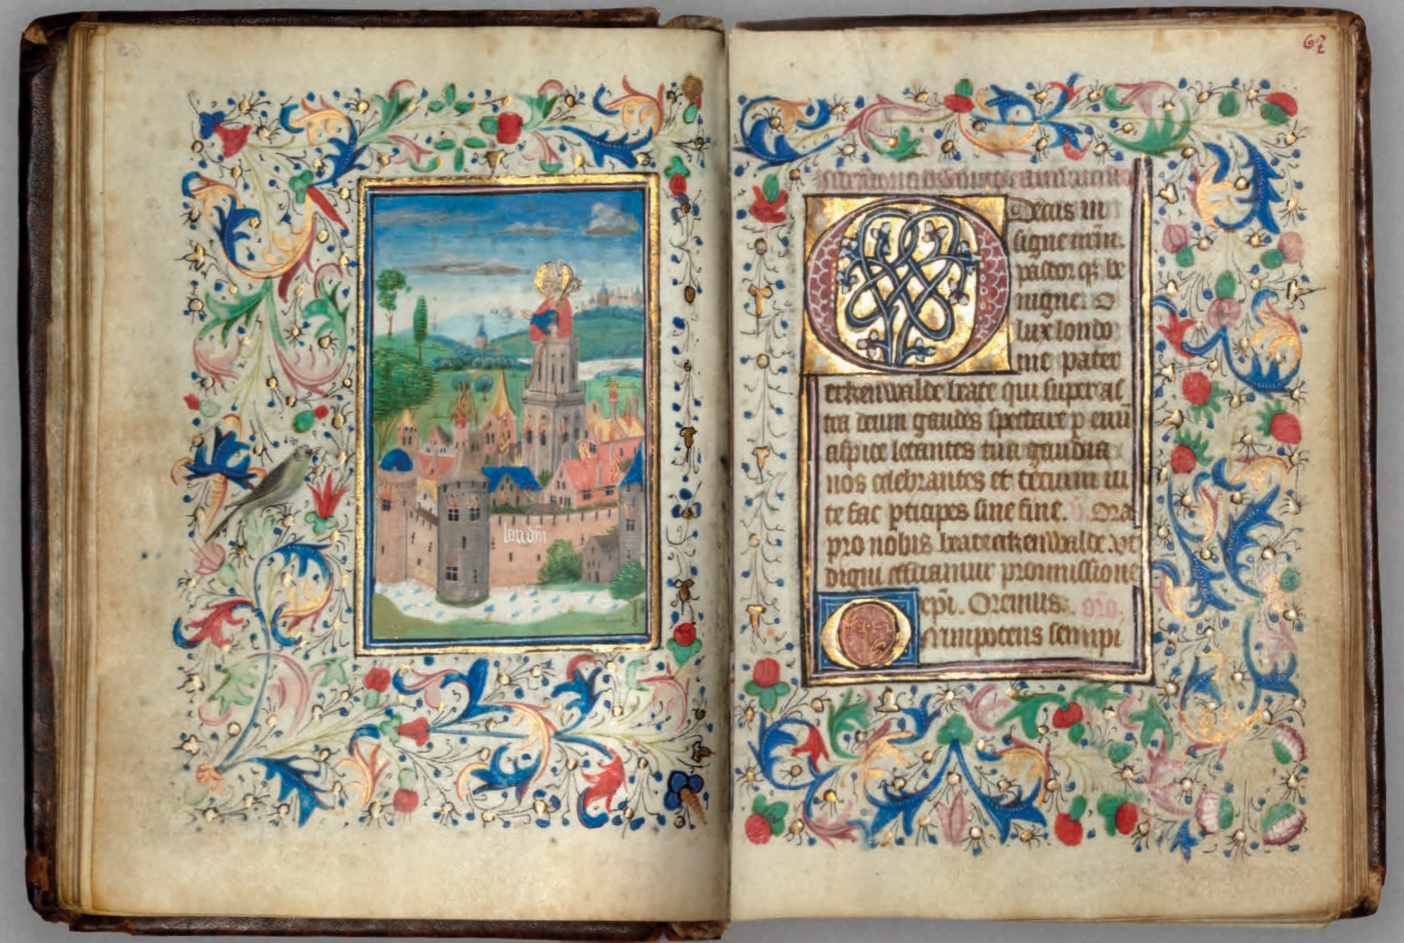 london
67
O Decus in
signe nr̄m.
pastor q3 be
nigne. O
lux londo
nie pater
erkenwalde beate qui super as
tra deum gaudes spectare p euū
aspice letantes tua gaudia
nos celebrantes et tecum iu
te fac pticipes sine fine. v̄. Ora
pro nobis beate erkenwalde. vt
digni efficiamur promissione
epi. Oremus. or̄o.
Omnipotens sempi